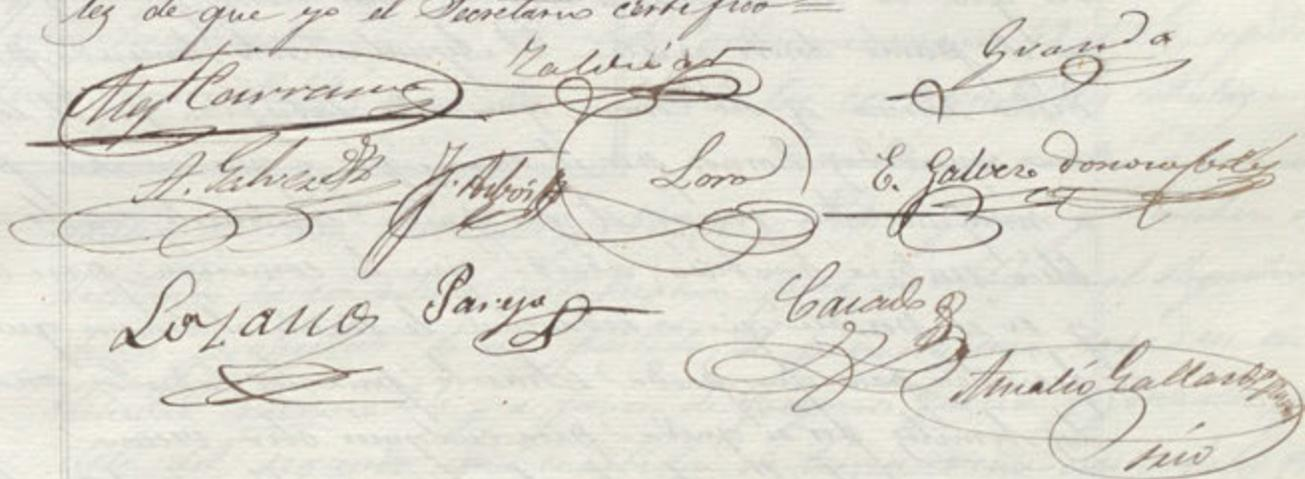 tez de que yo el Secretario certifico =
Carrasco Zaldívar Granda
A. Galvez J. Aubós Loro E. Galvez Donoso Cortés
Lozano Pareja Casado
Amalio Gallardo
srio